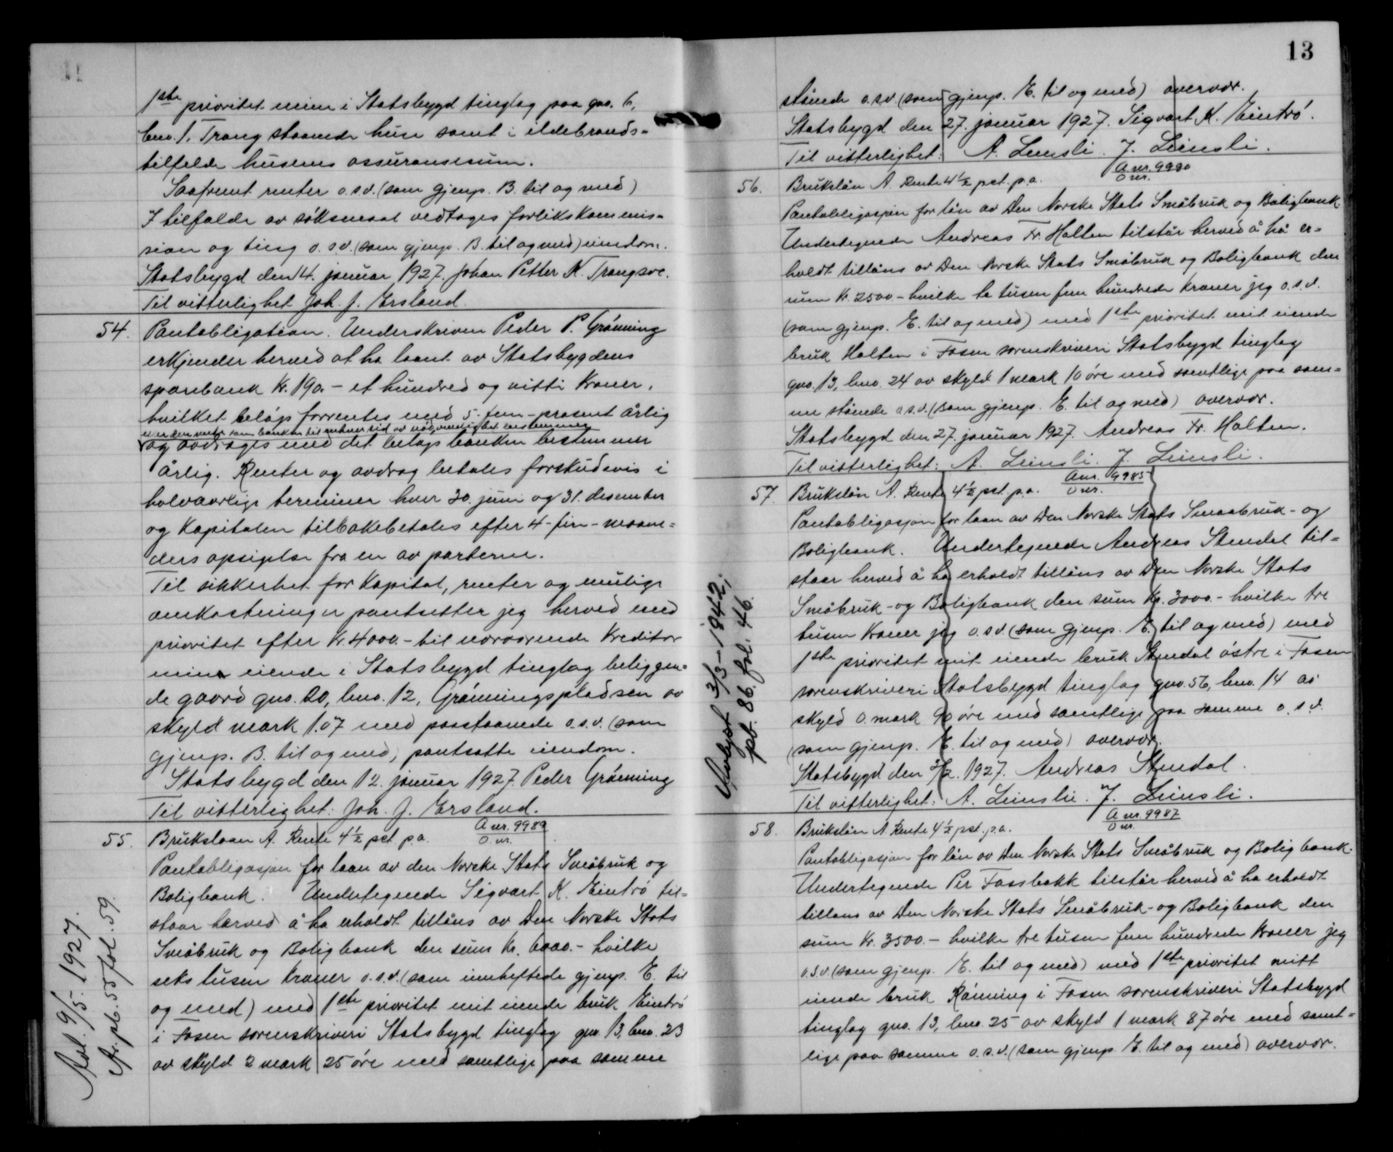 1ste prioritet min i Statsbygd tinglag paa gno. 6,
bno. 1. Trang staaende huse samt i ildebrands-
tilfelde husenes assuransesum.
Saafremt renter o.s.v. (som gjenp. B. til og med)
I tilfælde av søksmaal vedtages forlikskommis-
sion og ting o.s.v. (som gjenp. B. til og med) eiendom.
Statsbygd den 14. januar 1927. Johan Petter K. Trangsoe.
Til vitterlighet Joh. J. Ersland.
54. Pantobligation. Underskriven Peder P. Grønning
erkjender herved at ha laant av Statsbygdens
sparebank Kr. 190.- et hundred og nitti Kroner,
hvilket beløp forrentes med 5 - fem - prosent årlig
eller den rente som banken til enhver tid av nødvendighet
og avdrages med det beløp banken bestemmer
årlig. Renter og avdrag betales forskudsvis i
halvaarlige terminer hver 30. juni og 31. desember
og Kapitalen tilbakebetales efter 4 - fire - maane-
ders opsigelse fra en av parterne.
Til sikkerhet for Kapital, renter og mulige
omkostninger pantsetter jeg herved med
prioritet efter Kr 4000.- til nærværende Kreditor
min eiende i Statsbygd tinglag beliggen-
de gaard gno. 20, bno. 12, Grønningspladsen av
skyld mark 1.07 med paastaaende o.s.v. (som
gjenp. B. til og med) pantsatte eiendom.
Statsbygd den 12. januar 1927. Peder Grønning
Til vitterlighet: Joh. J. Ersland.
55. Brukslaan A. Rente 4½ pct p.a. A nr. 9989
O nr.
Pantobligasjon for laan av den Norske Stats Småbruk og
Boligbank. Undertegnede Sigvart K. Eintrø til-
staar herved å ha erholdt tillåns av Den Norske Stats
Småbruk og Boligbank den sum Kr. 6000.- hvilke
seks tusen kroner o.s.v. (som innheftede gjenp. E. til
og med) med 1ste prioritet mit eiende bruk Eintrø
i Fosen sorenskriveri Statsbygd tinglag gno 13, bno. 23
av skyld 2 mark 25 øre med samtlige paa samme
Avl 9/5-1927.
pb. 55 fol. 59.
13
stående o.s.v. (som gjenp. E. til og med) overvær.
Statsbygd den 27. januar 1927. Sigvart K. Eintrø.
Til vitterlighet: A. Leinsli. J. Leinsli.
56. Brukslån A. Rente 4½ pct. p.a. A nr. 9990
O nr.
Pantobligasjon for lån av Den Norske Stats Småbruk og Boligbank
Undertegnede Andreas Fr. Halten tilstår herved å ha er-
holdt tillåns av Den Norske Stats Småbruk og Boligbank den
sum Kr. 2500.- hvilke to tusen fem hundrede kroner jeg o.s.v.
(som gjenp. E. til og med) med 1ste prioritet mit eiende
bruk Halten i Fosen sorenskriveri Statsbygd tinglag
gno. 13, bno. 24 av skyld 1 mark 10 øre med samtlige paa sam-
me stående o.s.v. (som gjenp. E. til og med) overvær.
Statsbygd den 27. januar 1927. Andreas Fr. Halten.
Til vitterlighet: A. Leinsli. J. Leinsli.
57. Brukslån A. Rente 4½ pct. p.a. A nr. 9985
O nr.
Pantobligasjon for laan av Den Norske Stats Smaabruk- og
Boligbank. Undertegnede Andreas Stendal til-
staar herved å ha erholdt tillåns av Den Norske Stats
Småbruk- og Boligbank den sum Kr. 3000.- hvilke tre
tusen kroner jeg o.s.v. (som gjenp. E. til og med) med
1ste prioritet mit eiende bruk Stendal østre i Fosen
sorenskriveri Statsbygd tinglag gno. 56, bno. 14 av
skyld 0 mark 90 øre med samtlige paa samme o.s.v.
(som gjenp. E. til og med) overvær.
Statsbygd den 2/2 1927. Andreas Stendal.
Til vitterlighet: A. Leinslie. J. Leinsli.
Avlyst 3/3-1942,
pb. 86. fol. 46.
58. Brukslån A Rente 4½ pct. p.a. A nr. 9987
O nr.
Pantobligasjon for lån av Den Norske Stats Småbruk og Boligbank.
Undertegnede Per Fossbakk tilstår herved å ha erholdt
tillåns av Den Norske Stats Småbruk- og Boligbank den
sum Kr. 3500.- hvilke tre tusen fem hundrede kroner jeg
o.s.v. (som gjenp. E. til og med) med 1ste prioritet mitt
eiende bruk Rønning i Fosen sorenskriveri Statsbygd
tinglag gno. 13, bno. 25 av skyld 1 mark 87 øre med samt-
lige paa samme o.s.v. (som gjenp. E. til og med) overvær.